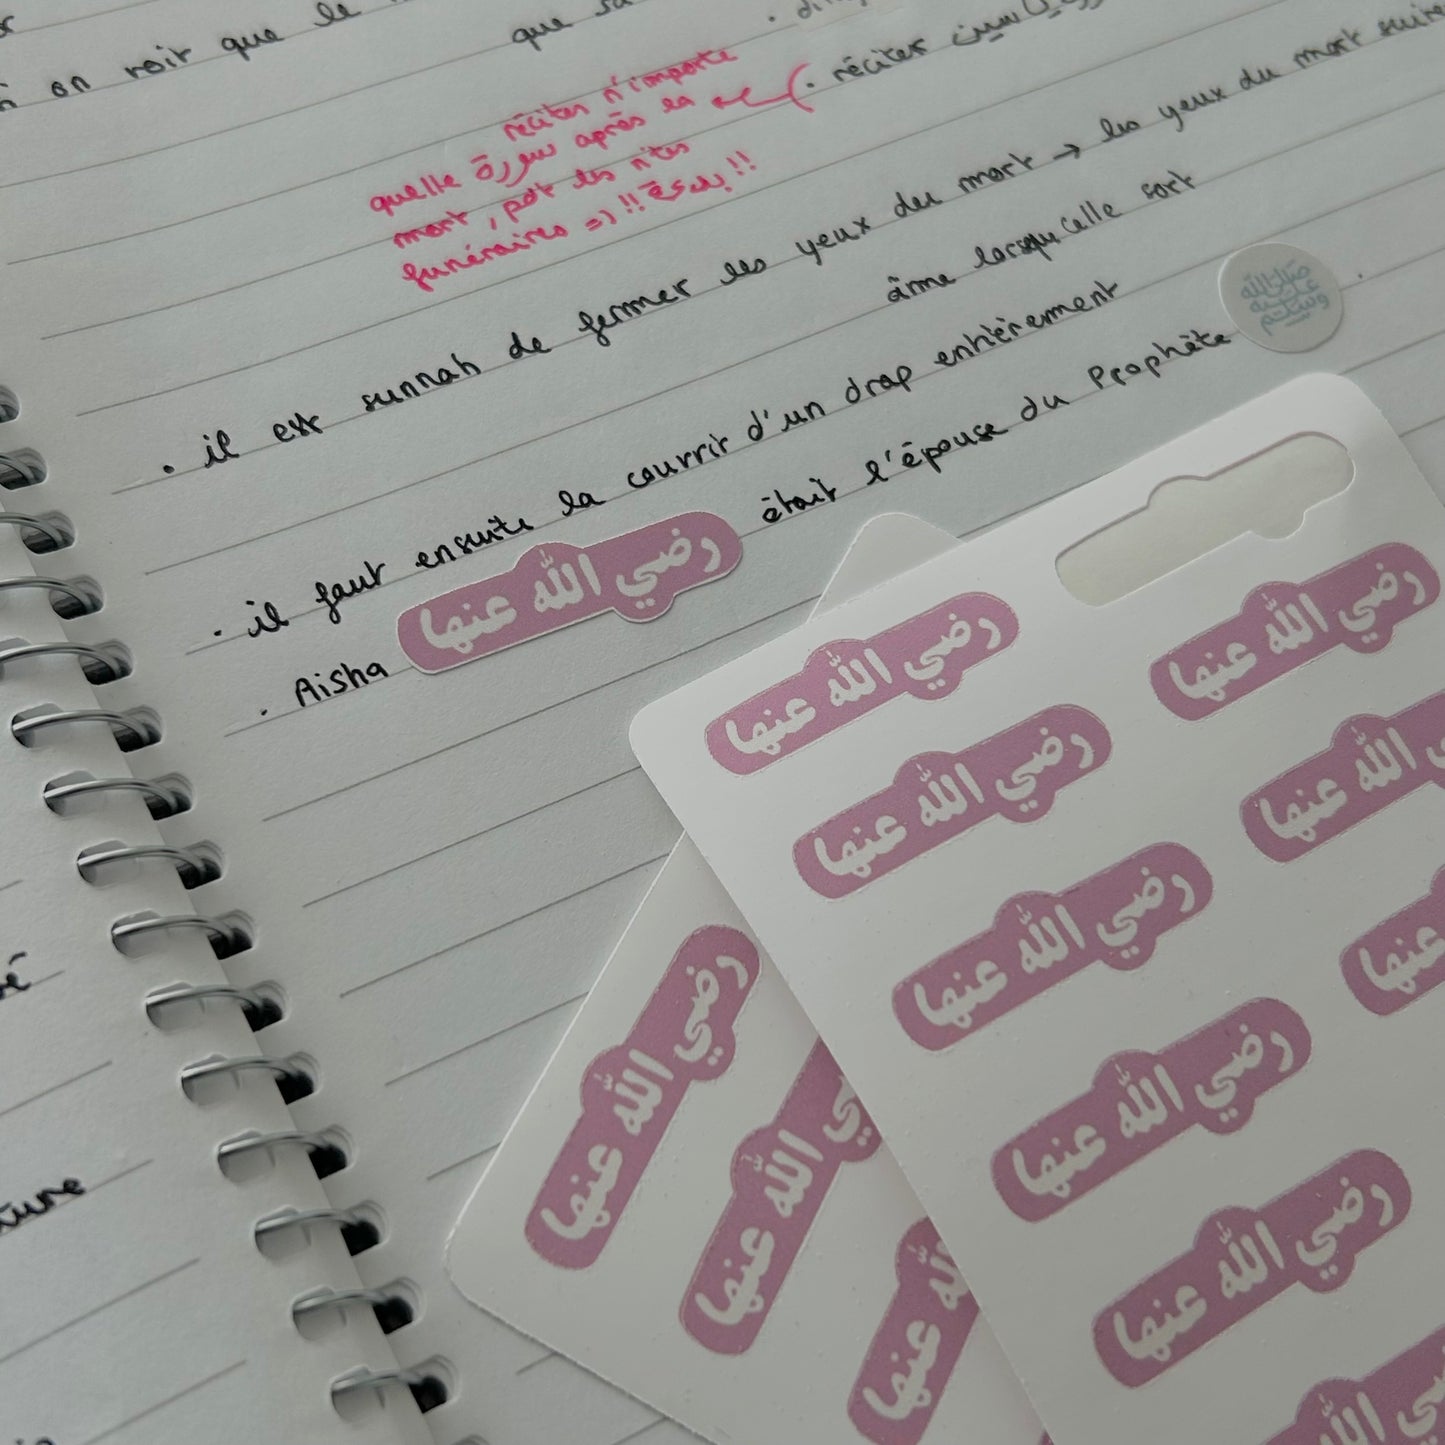 on voit que le
que sa
. réciter ياسين
réciter n'importe
quelle سورة après la
mort, pdt les rites
funéraires => !! بدعة !!
. il est sunnah de fermer les yeux du mort → les yeux du mort suive
âme lorsqu'elle sort
. il faut ensuite la couvrir d'un drap entièrement
. Aisha رضي الله عنها était l'épouse du Prophète صلى الله عليه وسلم .
رضي الله عنها
رضي الله عنها
رضي الله عنها
رضي الله عنها
رضي الله عنها
رضي الله عنها
الله عنها
عنها
رضي الله عنها
الله عنها
الله عنها